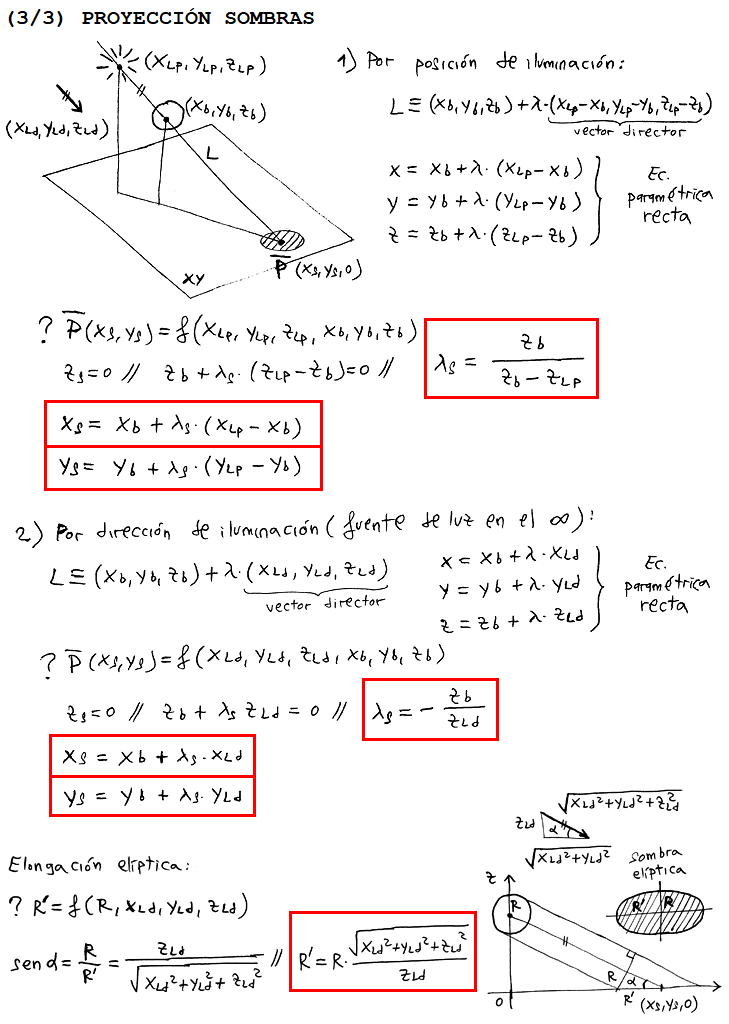 (3/3) PROYECCIÓN SOMBRAS
(XLP, YLP, ZLP)
(XLd, YLd, ZLd)
(Xb, Yb, Zb)
L
P̅ (Xs, Ys, 0)
XY
1) Por posición de iluminación:
L ≡ (Xb, Yb, Zb) + λ·(XLP-Xb, YLP-Yb, ZLP-Zb)
vector director
X = Xb + λ·(XLP-Xb)
Y = Yb + λ·(YLP-Yb)
Z = Zb + λ·(ZLP-Zb)
Ec.
paramétrica
recta
? P̅(Xs, Ys) = f(XLP, YLP, ZLP, Xb, Yb, Zb)
Zs=0 // Zb + λs·(ZLP-Zb)=0 // λs = Zb / (Zb - ZLP)
Xs = Xb + λs·(XLP - Xb)
Ys = Yb + λs·(YLP - Yb)
2) Por dirección de iluminación (fuente de luz en el ∞):
L ≡ (Xb, Yb, Zb) + λ·(XLd, YLd, ZLd)
vector director
X = Xb + λ·XLd
Y = Yb + λ·YLd
Z = Zb + λ·ZLd
Ec.
paramétrica
recta
? P̅(Xs, Ys) = f(XLd, YLd, ZLd, Xb, Yb, Zb)
Zs=0 // Zb + λs ZLd = 0 // λs = - Zb / ZLd
Xs = Xb + λs·XLd
Ys = Yb + λs·YLd
Elongación elíptica:
? R' = f(R, XLd, YLd, ZLd)
sen α = R/R' = ZLd / √(XLd²+YLd²+ZLd²) // R' = R·√(XLd²+YLd²+ZLd²) / ZLd
√(XLd²+YLd²+ZLd²)
ZLd
α
√(XLd²+YLd²)
sombra
elíptica
R' R
Z
R
R
α
0
R'
(Xs, Ys, 0)